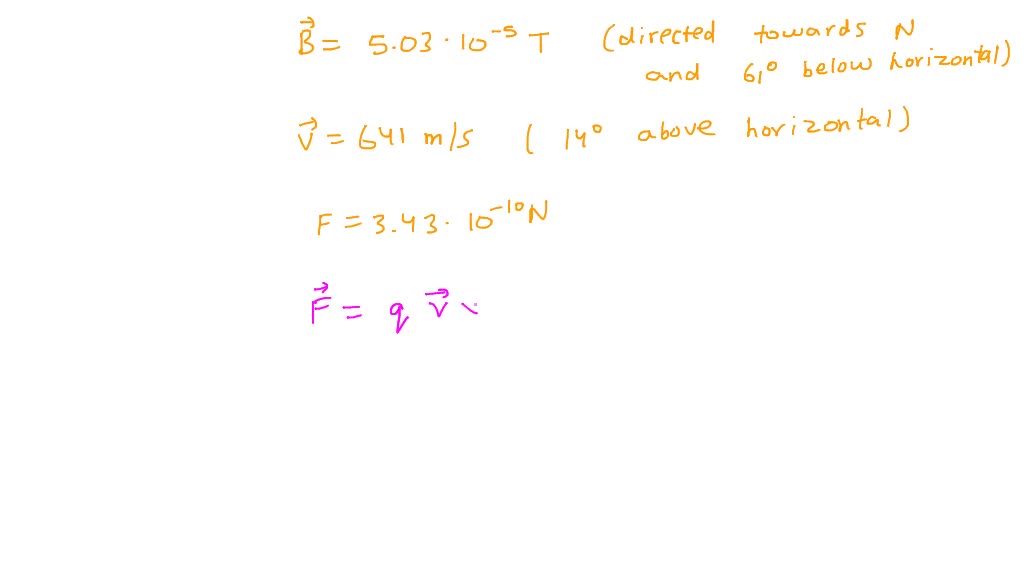 B⃗ = 5.03 · 10⁻⁵ T (directed towards N
and 61° below horizontal)
v⃗ = 641 m/s ( 14° above horizontal)
F = 3.43 · 10⁻¹⁰ N
F⃗ = q v⃗